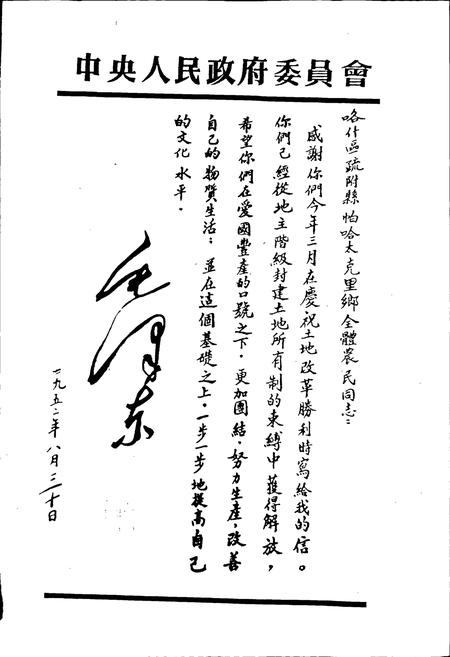 中央人民政府委員會
喀什區疏附縣帕哈太克里鄉全體農民同志：
感謝你們今年三月在慶祝土地改革勝利時寫給我的信。
你們已經從地主階級封建土地所有制的束縛中獲得解放，
希望你們在愛國豐產的口號之下，更加團結，努力生產，改善
自己的物質生活；並在這個基礎之上，一步一步地提高自己
的文化水平。
毛澤东
一九五二年八月三十日